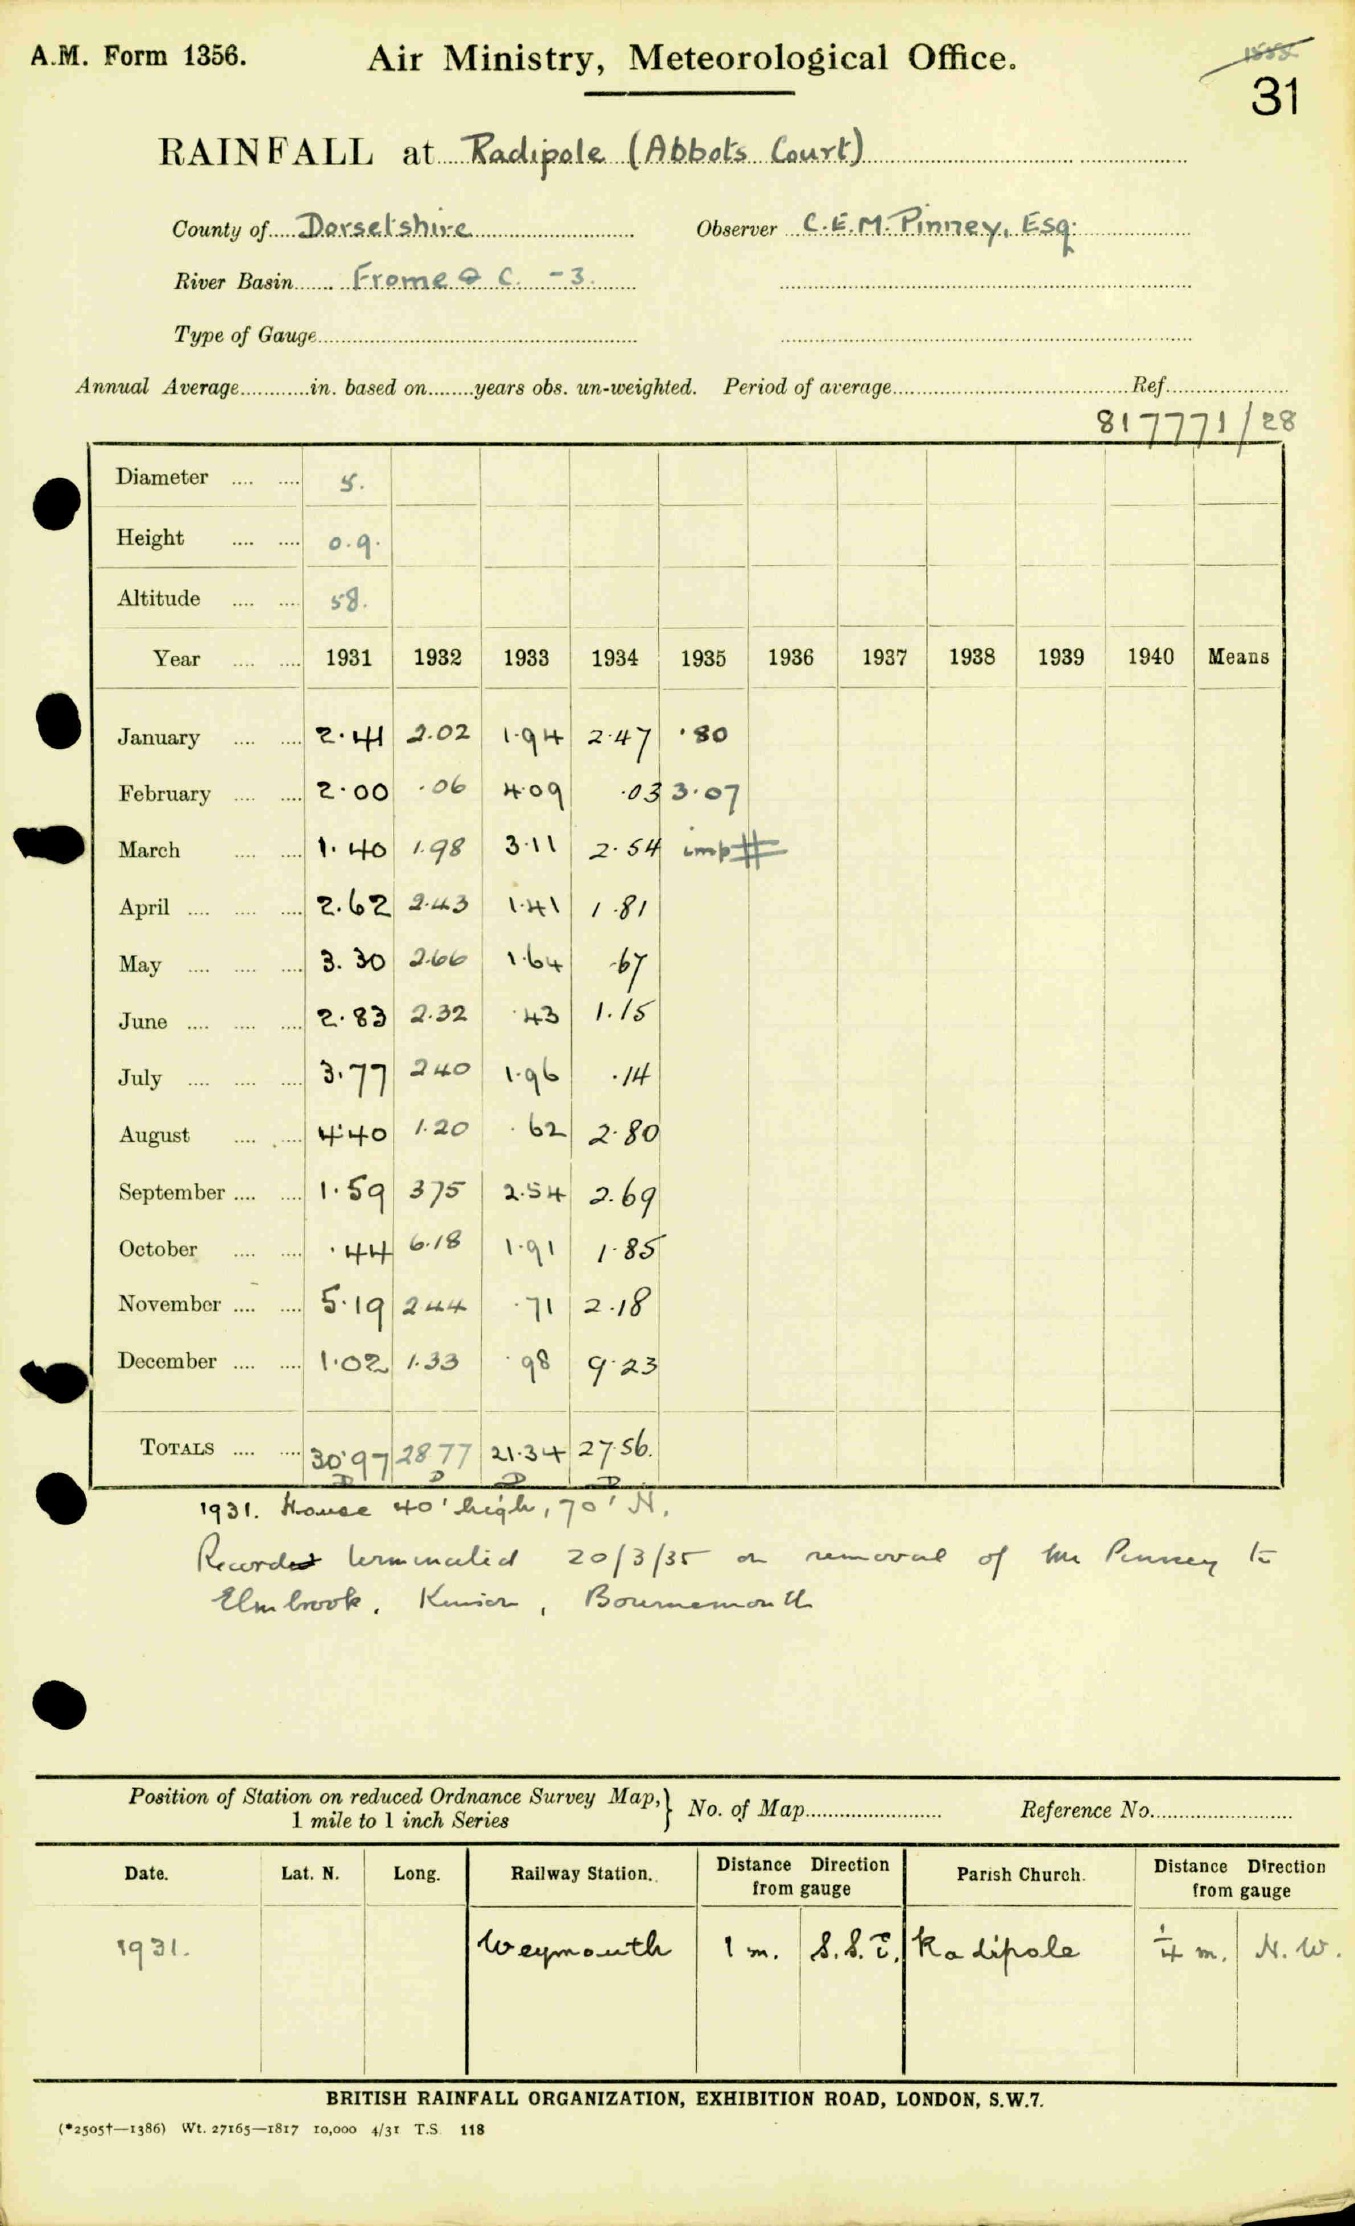 A.M. Form 1356. Air Ministry, Meteorological Office.
31
RAINFALL at Radipole (Abbots Court)
County of Dorsetshire Observer C.E.M. Pinney, Esq.
River Basin Frome & C. -3.
Type of Gauge
Annual Average in. based on years obs. un-weighted. Period of average Ref.
817771/28
Diameter 5.
Height 0.9.
Altitude 58.
Year 1931 1932 1933 1934 1935 1936 1937 1938 1939 1940 Means
January 2.41 2.02 1.94 2.47 .80
February 2.00 .06 4.09 .03 3.07
March 1.40 1.98 3.11 2.54 imp #
April 2.62 2.43 1.41 1.81
May 3.30 2.66 1.64 .67
June 2.83 2.32 .43 1.15
July 3.77 2 40 1.96 .14
August 4.40 1.20 .62 2.80
September 1.59 3 75 2.54 2.69
October .44 6.18 1.91 1.85
November 5.19 2 44 .71 2.18
December 1.02 1.33 .98 9.23
TOTALS 30.97 28 77 21.34 27.56.
D D D D
1931. House 40' high, 70' N.
Record terminated 20/3/35 on removal of Mr Pinney to
Elmbrook, Kinson, Bournemouth
Position of Station on reduced Ordnance Survey Map, } No. of Map Reference No.
1 mile to 1 inch Series
Date. Lat. N. Long. Railway Station. Distance Direction from gauge Parish Church. Distance Direction from gauge
1931. Weymouth 1 m. S.S.E. Radipole 1/4 m. N.W.
BRITISH RAINFALL ORGANIZATION, EXHIBITION ROAD, LONDON, S.W.7.
(*2505†—1386) Wt. 27165—1817 10,000 4/31 T.S. 118